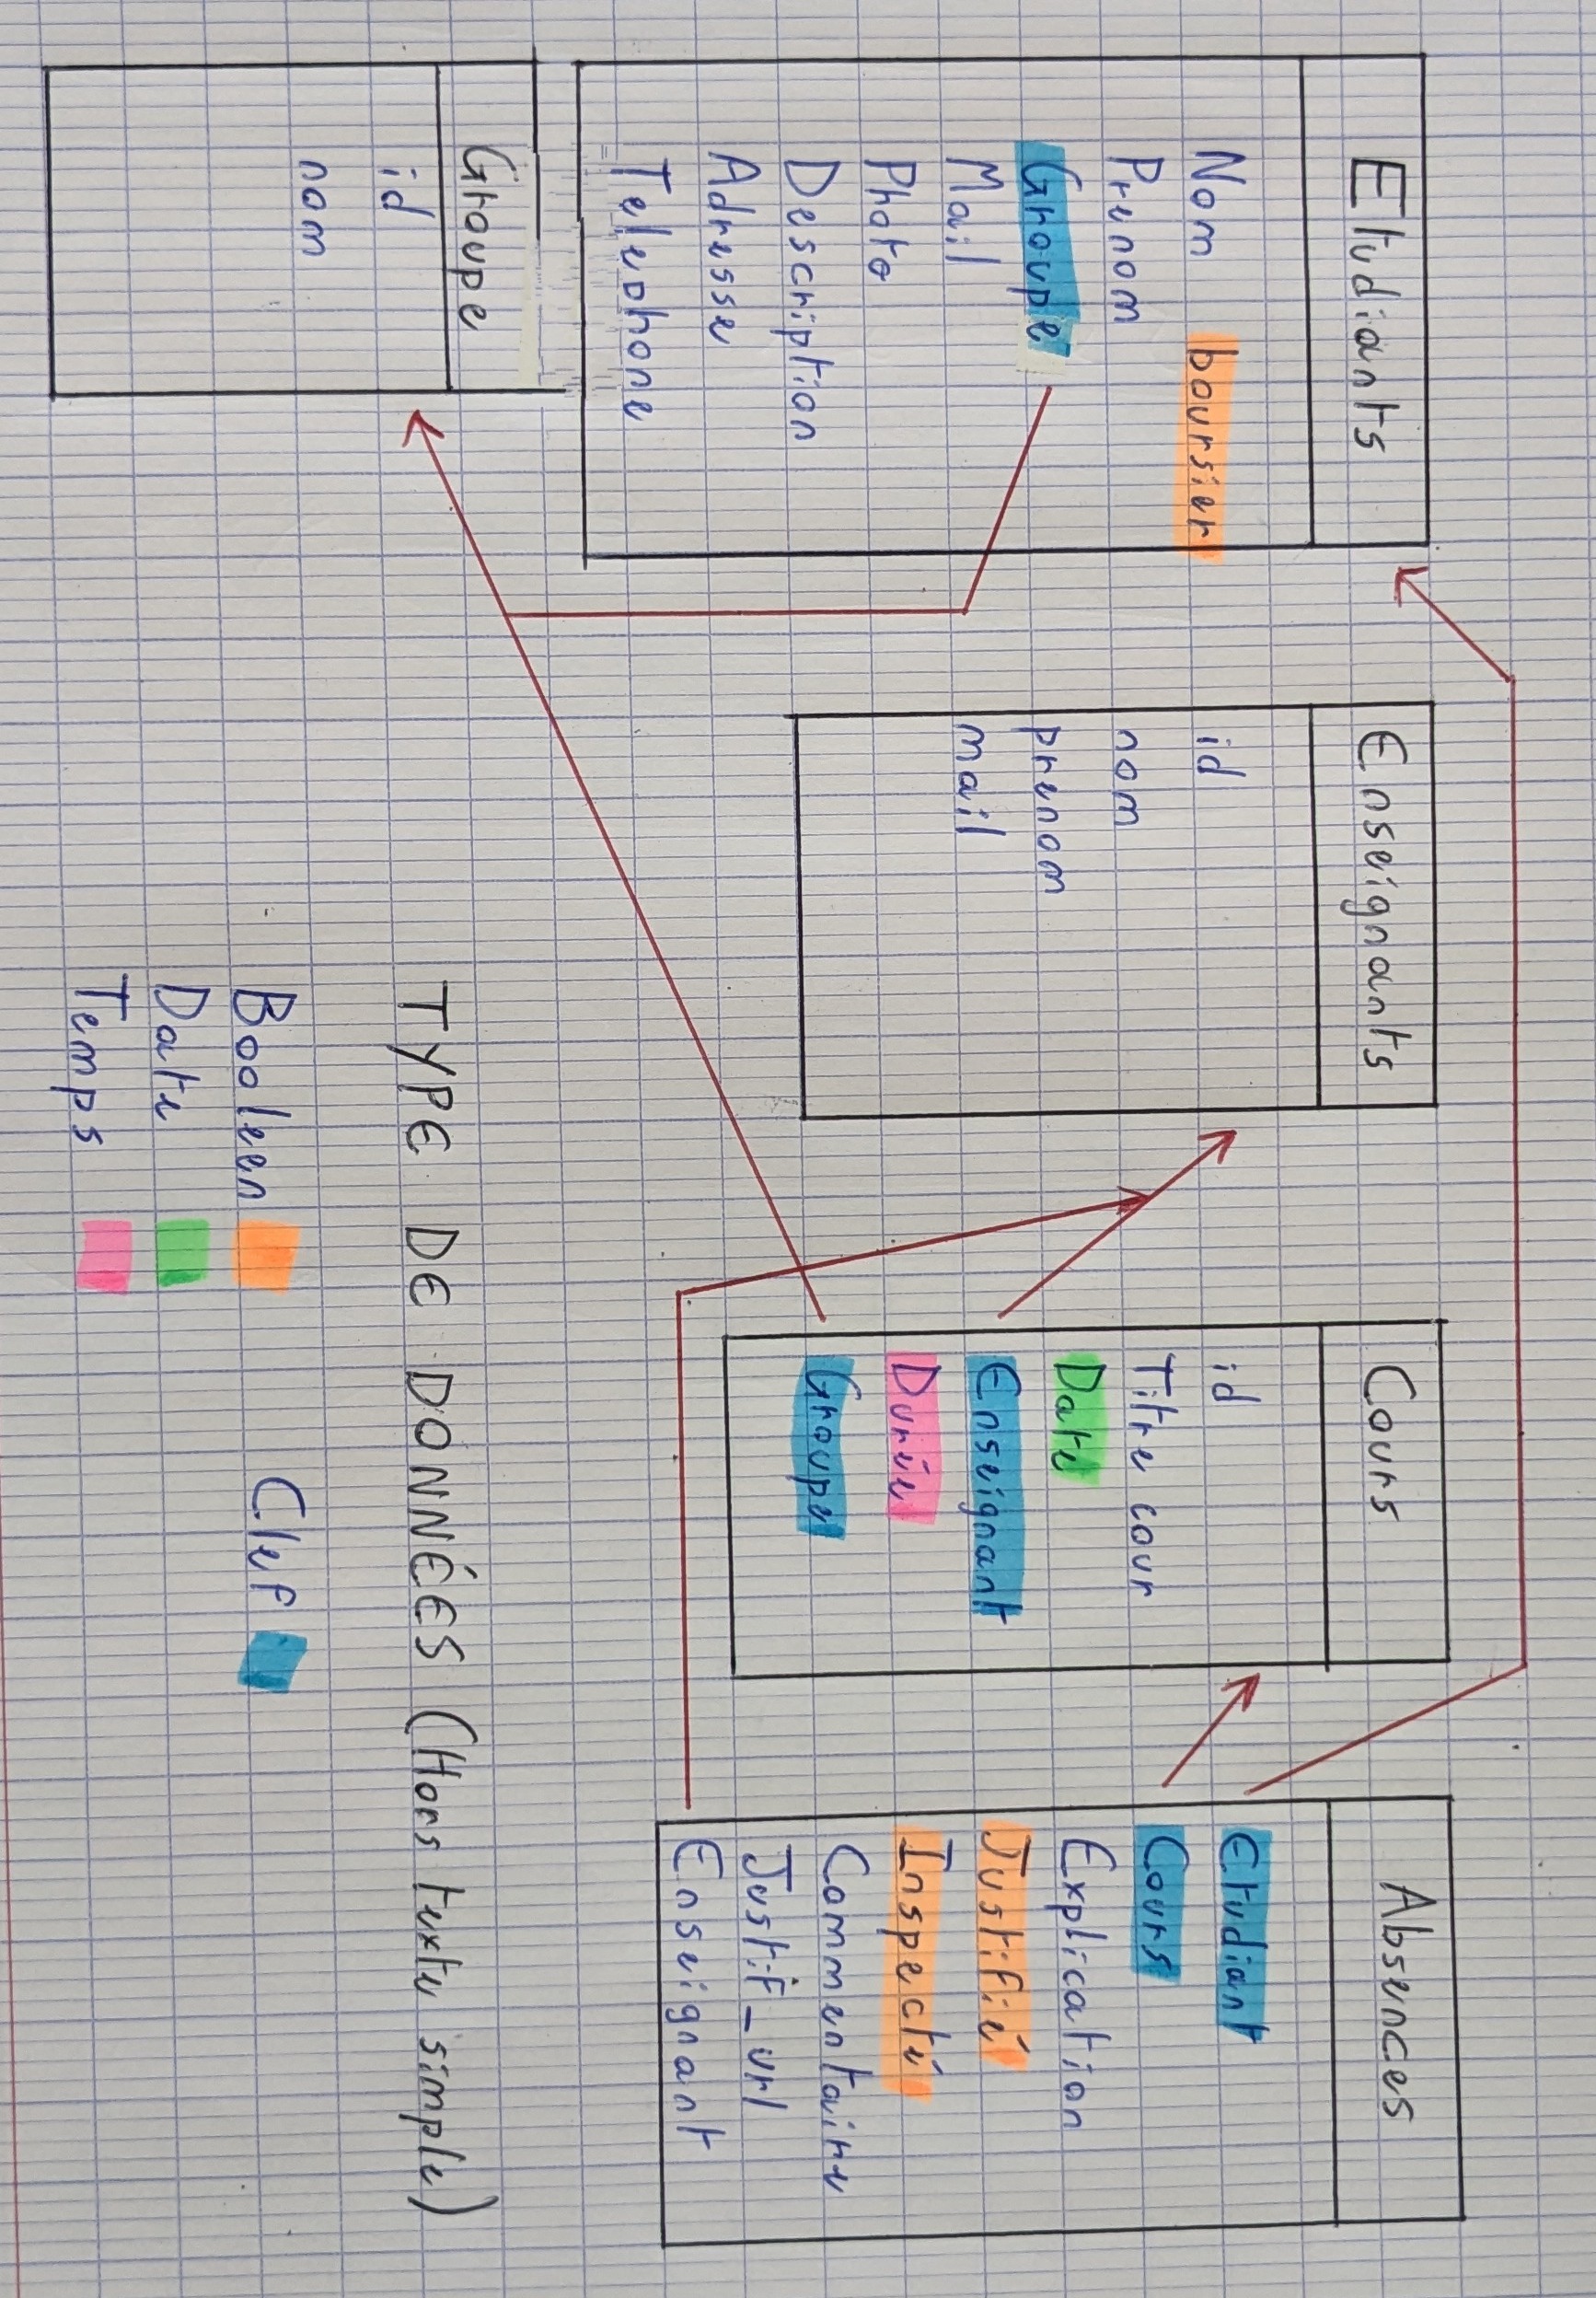 Etudiants
Nom boursier
Prenom
Groupe
Mail
Photo
Description
Adresse
Telephone
Groupe
id
nom
Enseignants
id
nom
prenom
mail
Cours
id
Titre cour
Date
Enseignant
Durée
Groupe
Absences
Etudiant
Cours
Explication
Justifié
Inspecté
Commentaire
Justif_url
Enseignant
TYPE DE DONNÉES (Hors texte simple)
Booleen
Date
Temps
Clef